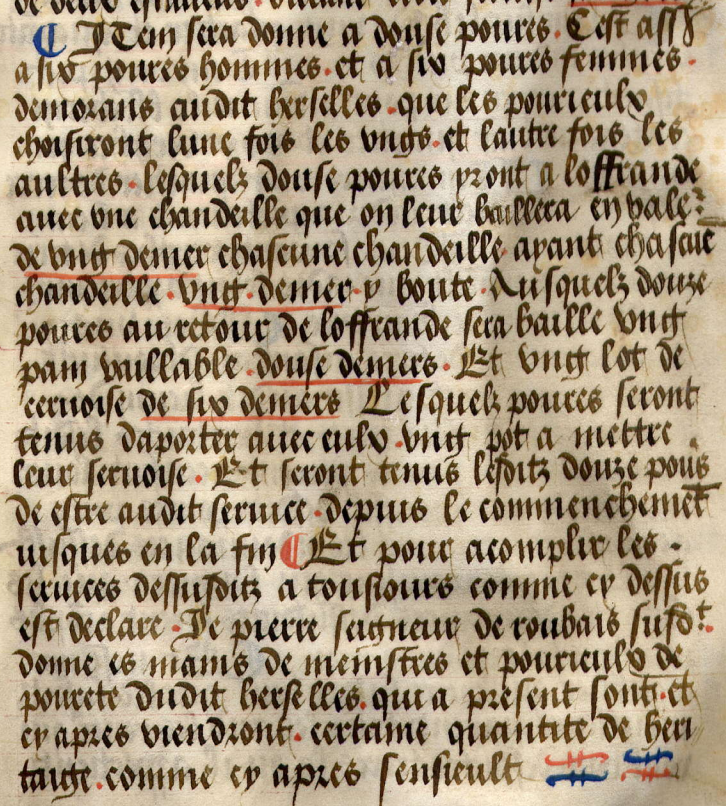 ¶ ITem sera donne a douse poures. Cest ass
a six poures hommes. et a six poures femmes.
demorans audit herselles. que les pourieulx
choisiront lune fois les vngs. et lautre fois les
aultres. lesquelz douse poures yront a loffrande
auec vne chandeille que on leur baillera en vale
de vng denier chascune chandeille. ayant chascue
chandeille. vng. denier y boute. Ausquelz douze
poures au retour de loffrande sera baille vng
pain vaillable. douse deniers. Et vng lot de
ceruoise de six deniers Lesquelz poures seront
tenus daporter auec eulx. vng pot a mettre
leur seruoise. Et seront tenus lesditz douze pours
de estre audit seruice. depuis le commenchemet
iusques en la fin ¶ Et pour acomplir les
seruices dessusditz a tousiours comme cy dessus
est declare. Je pierre seigneur de roubais susdt.
donne es mains de menistres et pourieulx de
pourete dudit herselles. qui a present sont. et
cy apres viendront. certaine quantite de heri
taige. comme cy apres sensieult